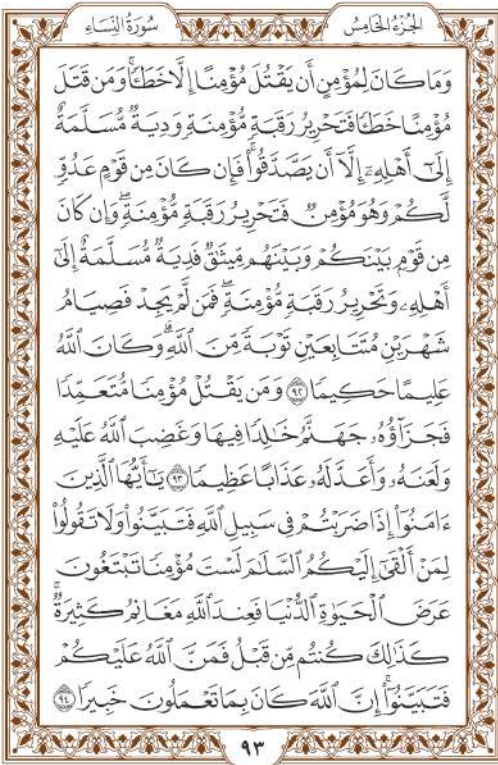 الجُزْءُ الخَامِسُ سُورَةُ النِّسَاءِ
وَمَا كَانَ لِمُؤْمِنٍ أَن يَقْتُلَ مُؤْمِنًا إِلَّا خَطَـًٔاۚ وَمَن قَتَلَ
مُؤْمِنًا خَطَـًٔا فَتَحْرِيرُ رَقَبَةٍ مُّؤْمِنَةٍ وَدِيَةٌ مُّسَلَّمَةٌ
إِلَىٰٓ أَهْلِهِۦٓ إِلَّآ أَن يَصَّدَّقُوا۟ۚ فَإِن كَانَ مِن قَوْمٍ عَدُوٍّ
لَّكُمْ وَهُوَ مُؤْمِنٌ فَتَحْرِيرُ رَقَبَةٍ مُّؤْمِنَةٍۖ وَإِن كَانَ
مِن قَوْمٍۭ بَيْنَكُمْ وَبَيْنَهُم مِّيثَٰقٌ فَدِيَةٌ مُّسَلَّمَةٌ إِلَىٰٓ
أَهْلِهِۦ وَتَحْرِيرُ رَقَبَةٍ مُّؤْمِنَةٍۖ فَمَن لَّمْ يَجِدْ فَصِيَامُ
شَهْرَيْنِ مُتَتَابِعَيْنِ تَوْبَةً مِّنَ ٱللَّهِۗ وَكَانَ ٱللَّهُ
عَلِيمًا حَكِيمًا ٩٢ وَمَن يَقْتُلْ مُؤْمِنًا مُّتَعَمِّدًا
فَجَزَآؤُهُۥ جَهَنَّمُ خَٰلِدًا فِيهَا وَغَضِبَ ٱللَّهُ عَلَيْهِ
وَلَعَنَهُۥ وَأَعَدَّ لَهُۥ عَذَابًا عَظِيمًا ٩٣ يَٰٓأَيُّهَا ٱلَّذِينَ
ءَامَنُوٓا۟ إِذَا ضَرَبْتُمْ فِى سَبِيلِ ٱللَّهِ فَتَبَيَّنُوا۟ وَلَا تَقُولُوا۟
لِمَنْ أَلْقَىٰٓ إِلَيْكُمُ ٱلسَّلَٰمَ لَسْتَ مُؤْمِنًا تَبْتَغُونَ
عَرَضَ ٱلْحَيَوٰةِ ٱلدُّنْيَا فَعِندَ ٱللَّهِ مَغَانِمُ كَثِيرَةٌۚ
كَذَٰلِكَ كُنتُم مِّن قَبْلُ فَمَنَّ ٱللَّهُ عَلَيْكُمْ
فَتَبَيَّنُوٓا۟ۚ إِنَّ ٱللَّهَ كَانَ بِمَا تَعْمَلُونَ خَبِيرًا ٩٤
٩٣